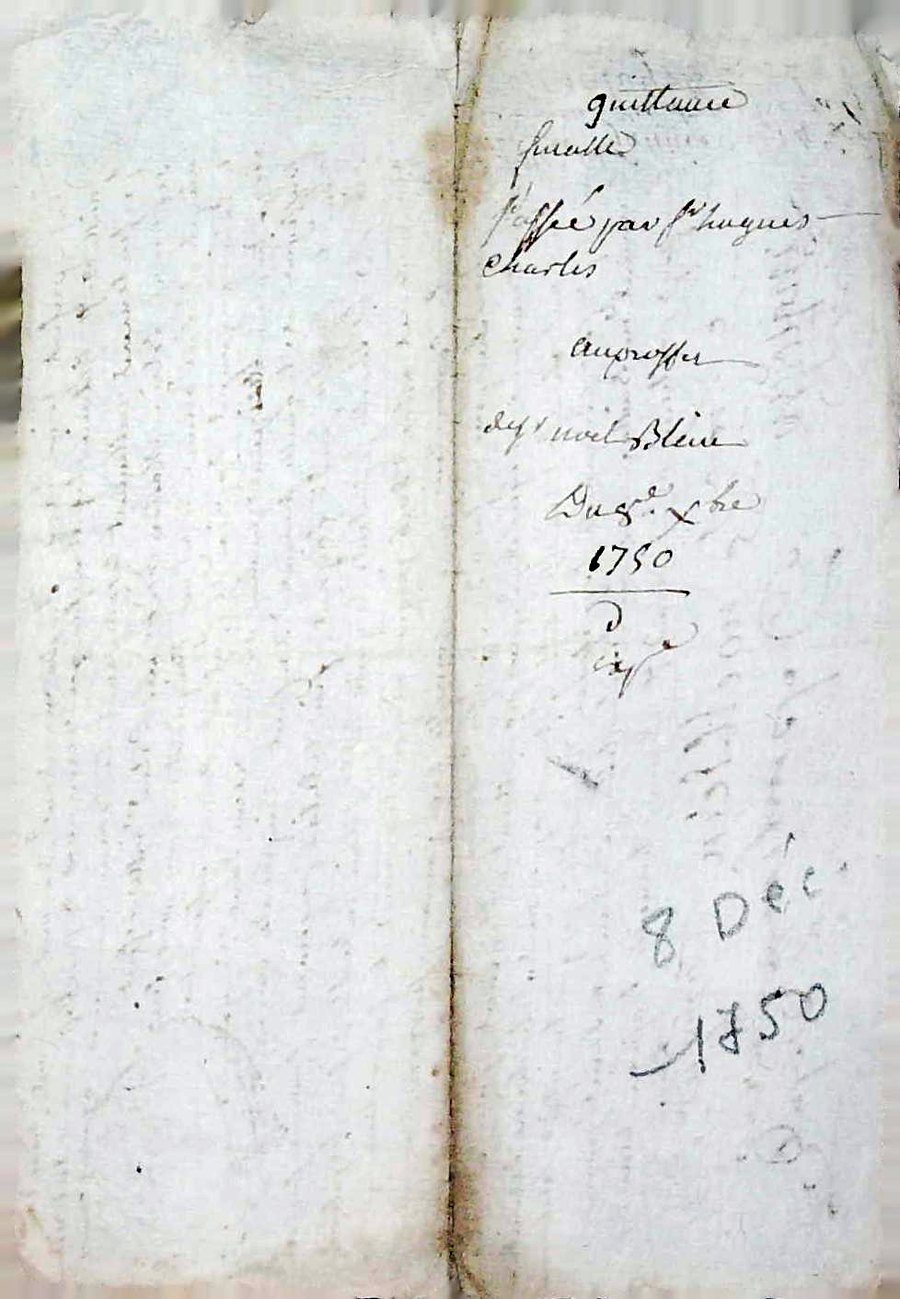 quittance
finalle
Passée par Sr hugues
Charles
au proffit
de Sr noel Blein
Du 8e. xbre
1750
8 Déc.
1750